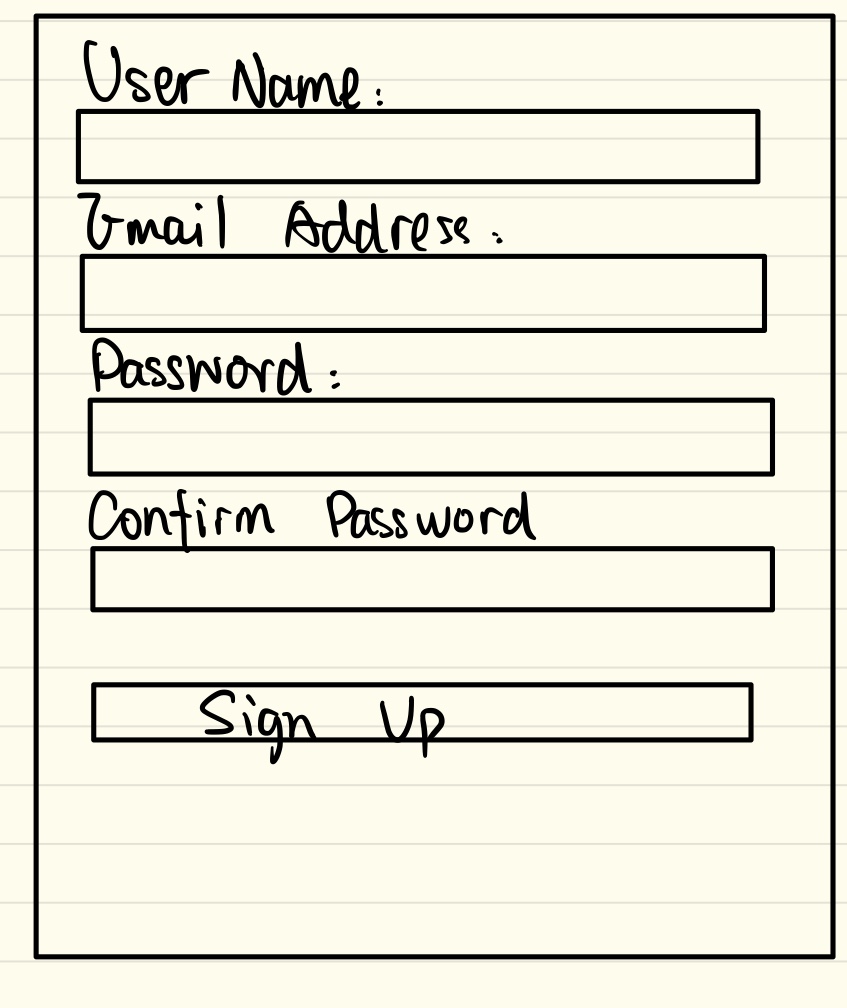 User Name:
Email Address:
Password:
Confirm Password
Sign Up